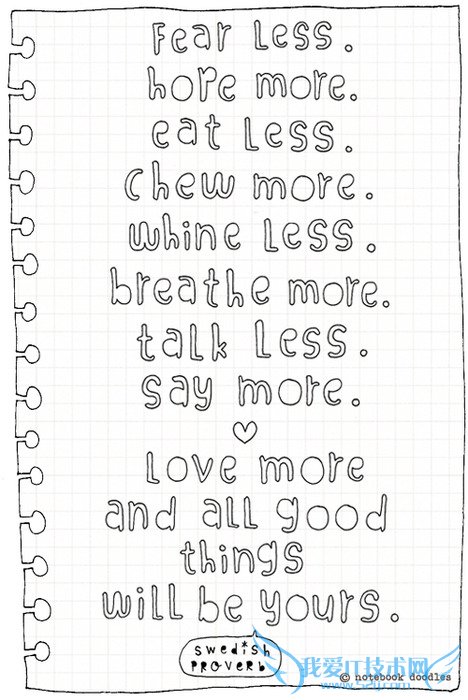 Fear Less.
hope more.
eat Less.
chew more.
whine Less.
breathe more.
talk Less.
say more.
Love more
and all good
things
will be yours.
swedish
proverb
我爱IT技术网
© notebook doodles